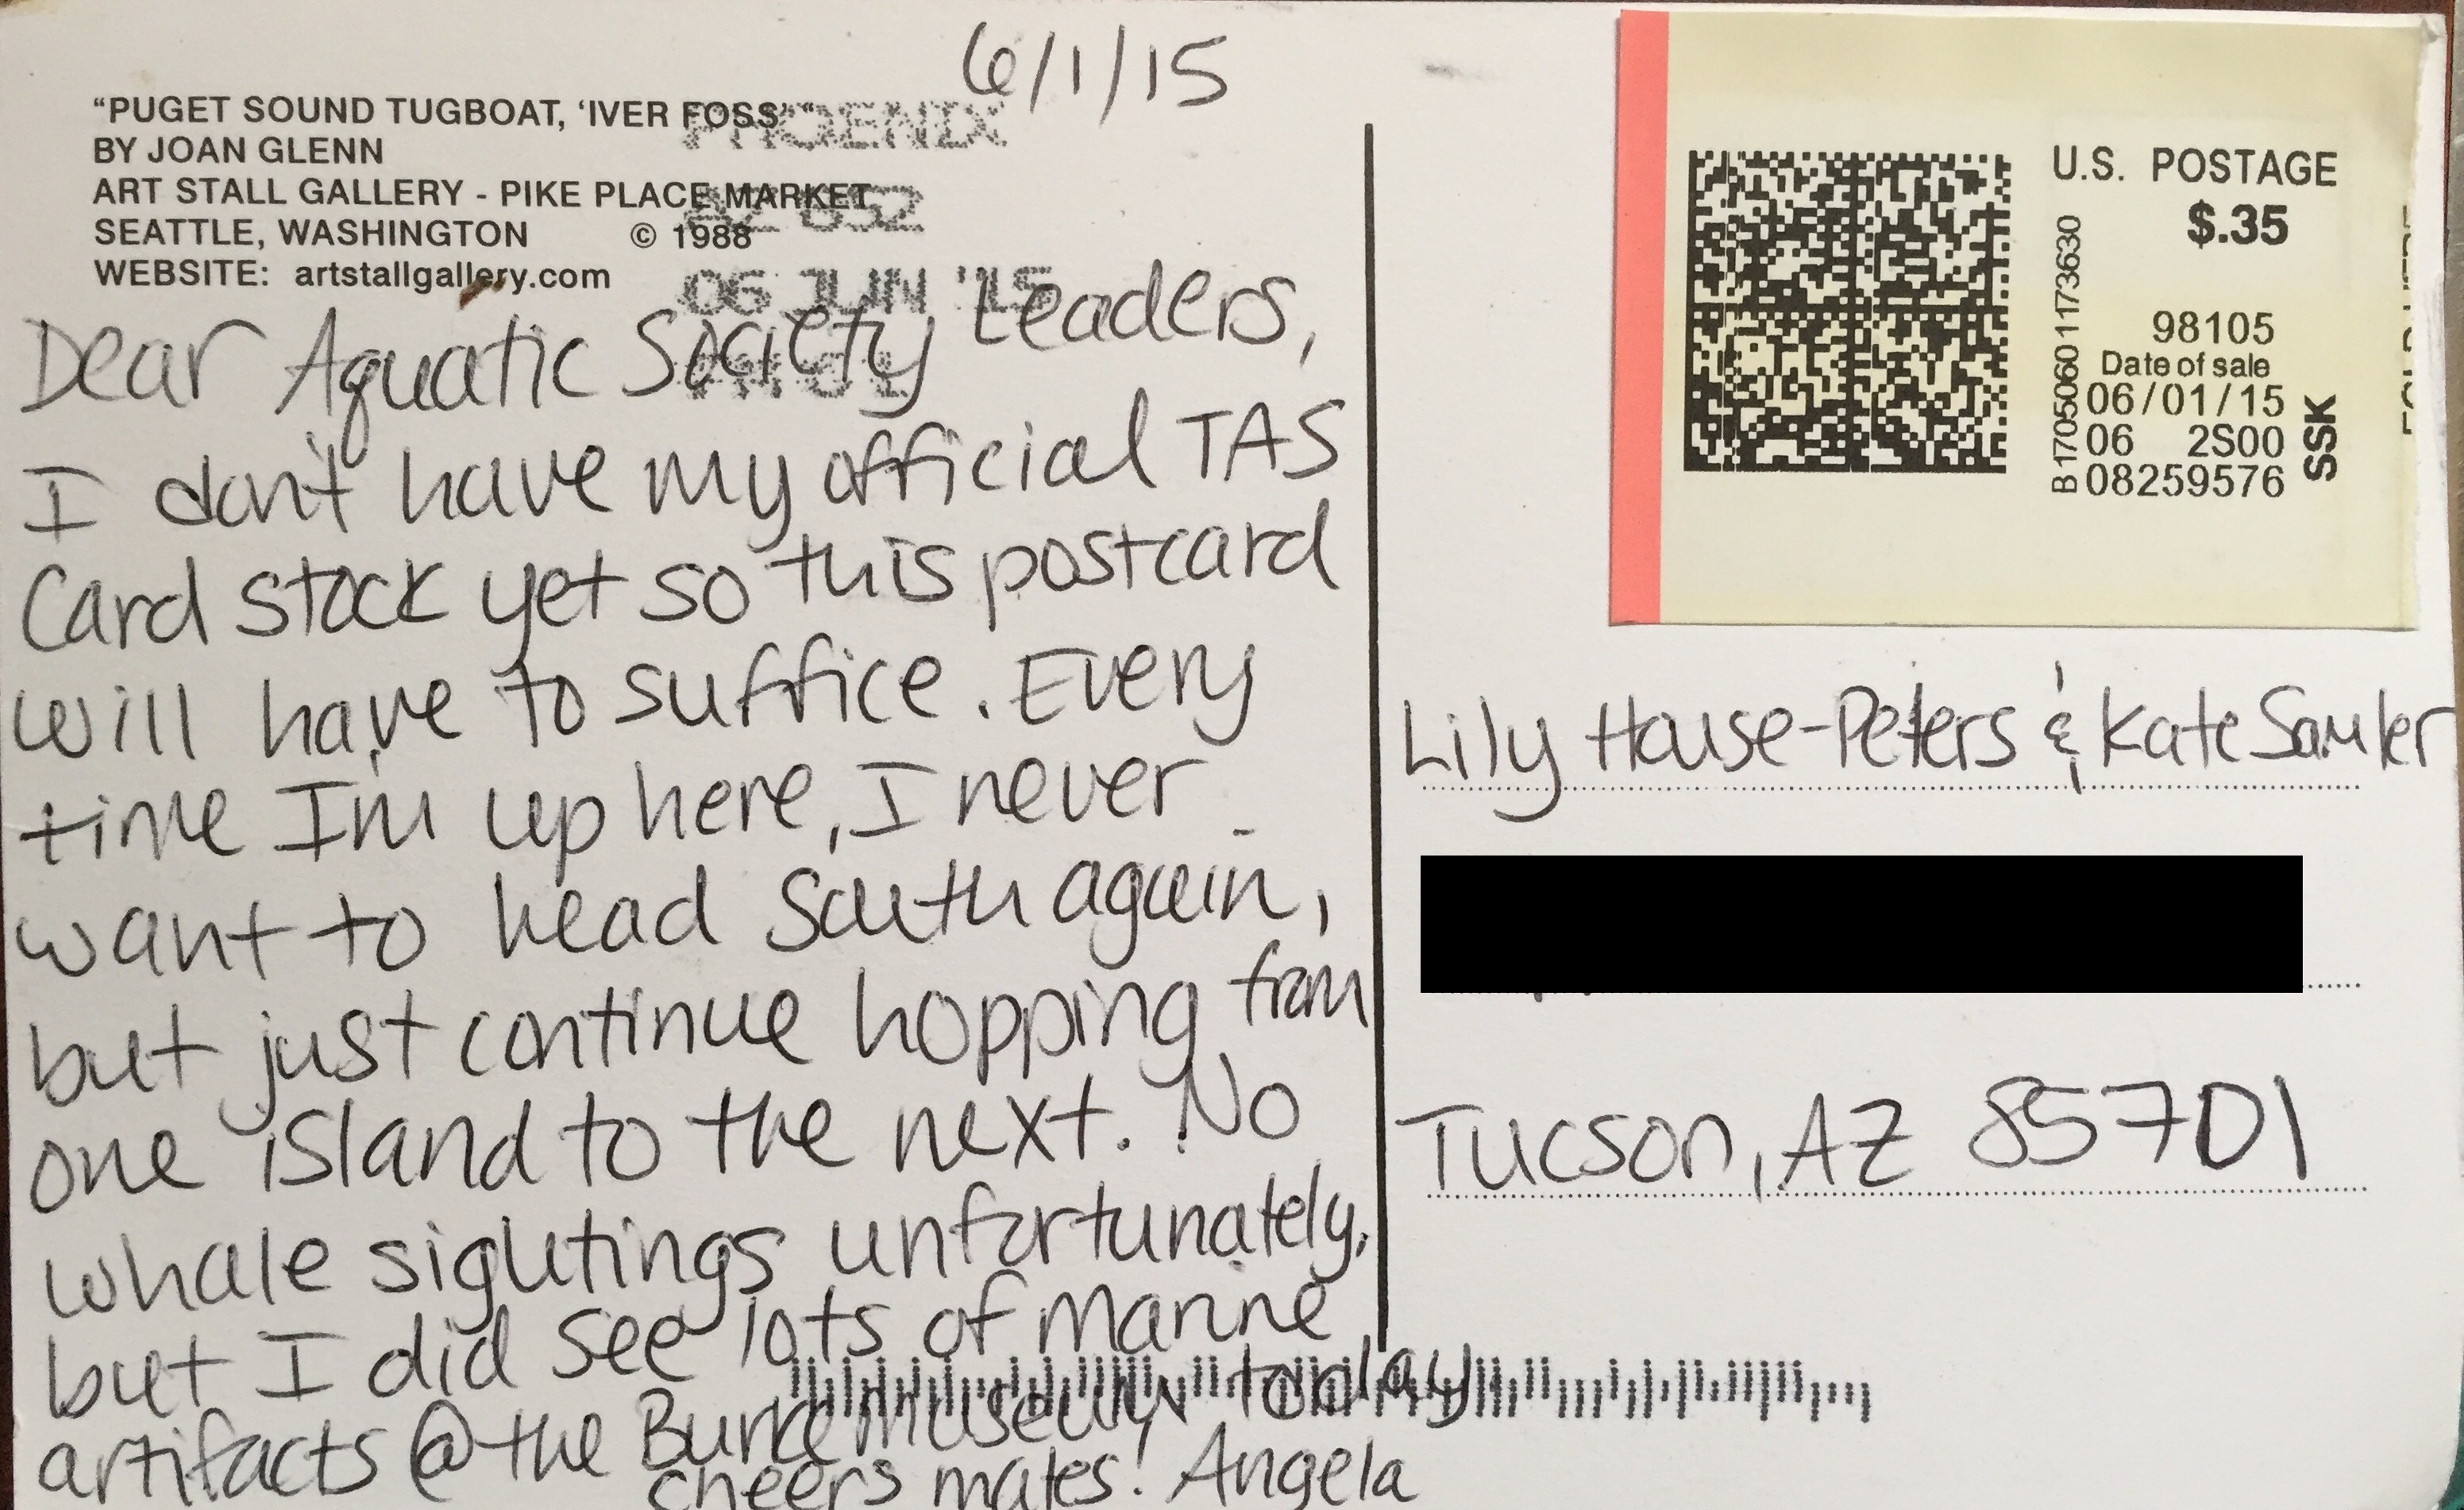 6/1/15
"PUGET SOUND TUGBOAT, 'IVER FOSS' "
BY JOAN GLENN
ART STALL GALLERY - PIKE PLACE MARKET
SEATTLE, WASHINGTON © 1988
WEBSITE: artstallgallery.com
PHOENIX
AZ 852
06 JUN '15
Dear Aquatic Society Leaders,
I don't have my official TAS
Card stock yet so this postcard
will have to suffice. Every
time I'm up here, I never
want to head South again,
but just continue hopping from
one island to the next. No
whale sightings unfortunately,
but I did see lots of marine
artifacts @ the Burke museum today
cheers mates! Angela
U.S. POSTAGE
$.35
98105
Date of sale
06/01/15
06 2S00
08259576
B 17050601173630
SSK
Lily House-Peters & Kate
Tucson, AZ 85701